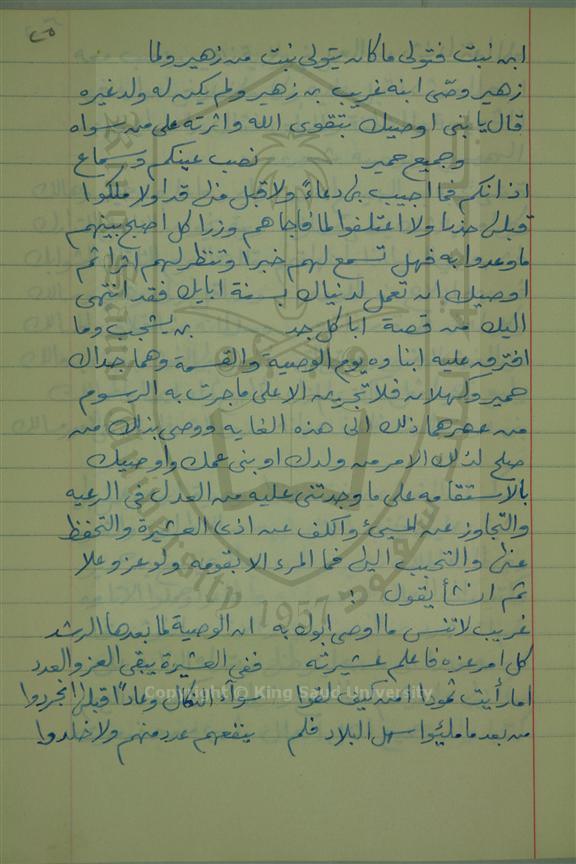 ٢٥
ابن نبت فتولى ما كان يتولى نبت من زهير ولما
زهير وصّى ابنه غريب بن زهير ولم يكن له ولد غيره
قال يا بني اوصيك بتقوى الله واثرته على من سواه
وجميع حمير نصب عينكم وسماع
اذانكم فما اصيب بلى دعاءً ولا قيل منى قد اولا ملكوا
قبلى حذبا ولا اعتلفوا لما فاجاهم وزرا كل اصلح بينهم
ما وعدوا به فهل تسمع لهم خبرا وتنظر لهم اثرا ثم
اوصيك ان تعمل لدنياك بسنة ابايك فقد انتهى
اليك من قصة ابا كل جد بن يشجب وما
افترق عليه ابناوه يوم الوصية والقسمة وهما جداك
حمير وكهلان فلا تجريه الا على ما جرت به الرسوم
من عصرهما ذلك الى هذه الغايه ووصى بذلك من
صلح لذلك الامر من ولدك او بني عمك واوصيك
بالاستقامه على ما وجدتني عليه من العدل في الرعيه
والتجاوز عن المسيئ واكفف عن اذى العشيرة والتحفظ
عنى والتحبب اليك فما المرء الا بقومه ولو عز وعلا
ثم انشأ يقول :
غريب لا تنس ما اوصى ابوك به ان الوصية لما بعدها الرشد
كل امر عزه فاعلم عشيرته ففي العشيرة يبقى العز والعدد
اما رأيت ثمودا امن كيف لقوا سواء النكال وعاداً قبلى انجردوا
من بعد ما ملئوا سهل البلاد فلم ينفعهم عدد منهم ولا خلدوا
Copyright © King Saud University
King Saud University 1957